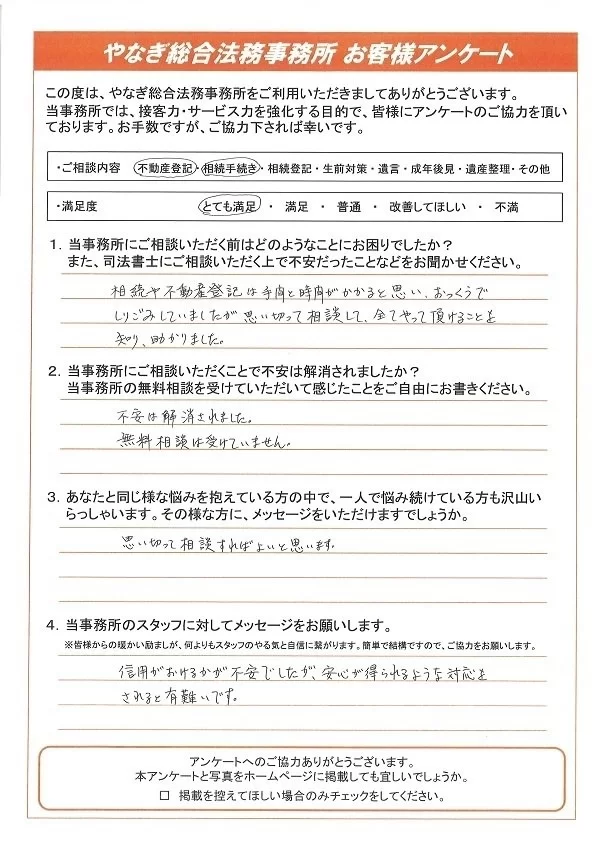 やなぎ総合法務事務所 お客様アンケート
この度は、やなぎ総合法務事務所をご利用いただきましてありがとうございます。
当事務所では、接客力・サービス力を強化する目的で、皆様にアンケートのご協力を頂い
ております。お手数ですが、ご協力下されば幸いです。
・ご相談内容 不動産登記・相続手続き・相続登記・生前対策・遺言・成年後見・遺産整理・その他
・満足度 とても満足 ・ 満足 ・ 普通 ・ 改善してほしい ・ 不満
1. 当事務所にご相談いただく前はどのようなことにお困りでしたか？
また、司法書士にご相談いただく上で不安だったことなどをお聞かせください。
相続や不動産登記は手間と時間がかかると思い、おっくうで
しりごみしていましたが思い切って相談して、全てやって頂けることを
知り、助かりました。
2. 当事務所にご相談いただくことで不安は解消されましたか？
当事務所の無料相談を受けていただいて感じたことをご自由にお書きください。
不安は解消されました。
無料相談は受けていません。
3. あなたと同じ様な悩みを抱えている方の中で、一人で悩み続けている方も沢山い
らっしゃいます。その様な方に、メッセージをいただけますでしょうか。
思い切って相談すればよいと思います。
4. 当事務所のスタッフに対してメッセージをお願いします。
※皆様からの暖かい励ましが、何よりもスタッフのやる気と自信に繋がります。簡単で結構ですので、ご協力をお願いします。
信用がおけるかが不安でしたが、安心が得られるような対応を
されると有難いです。
アンケートへのご協力ありがとうございます。
本アンケートと写真をホームページに掲載しても宜しいでしょうか。
□ 掲載を控えてほしい場合のみチェックをしてください。